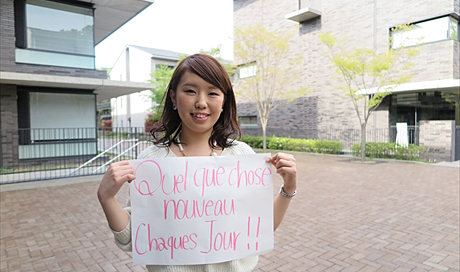 Quel que chose
nouveau
Chaques Jour!!